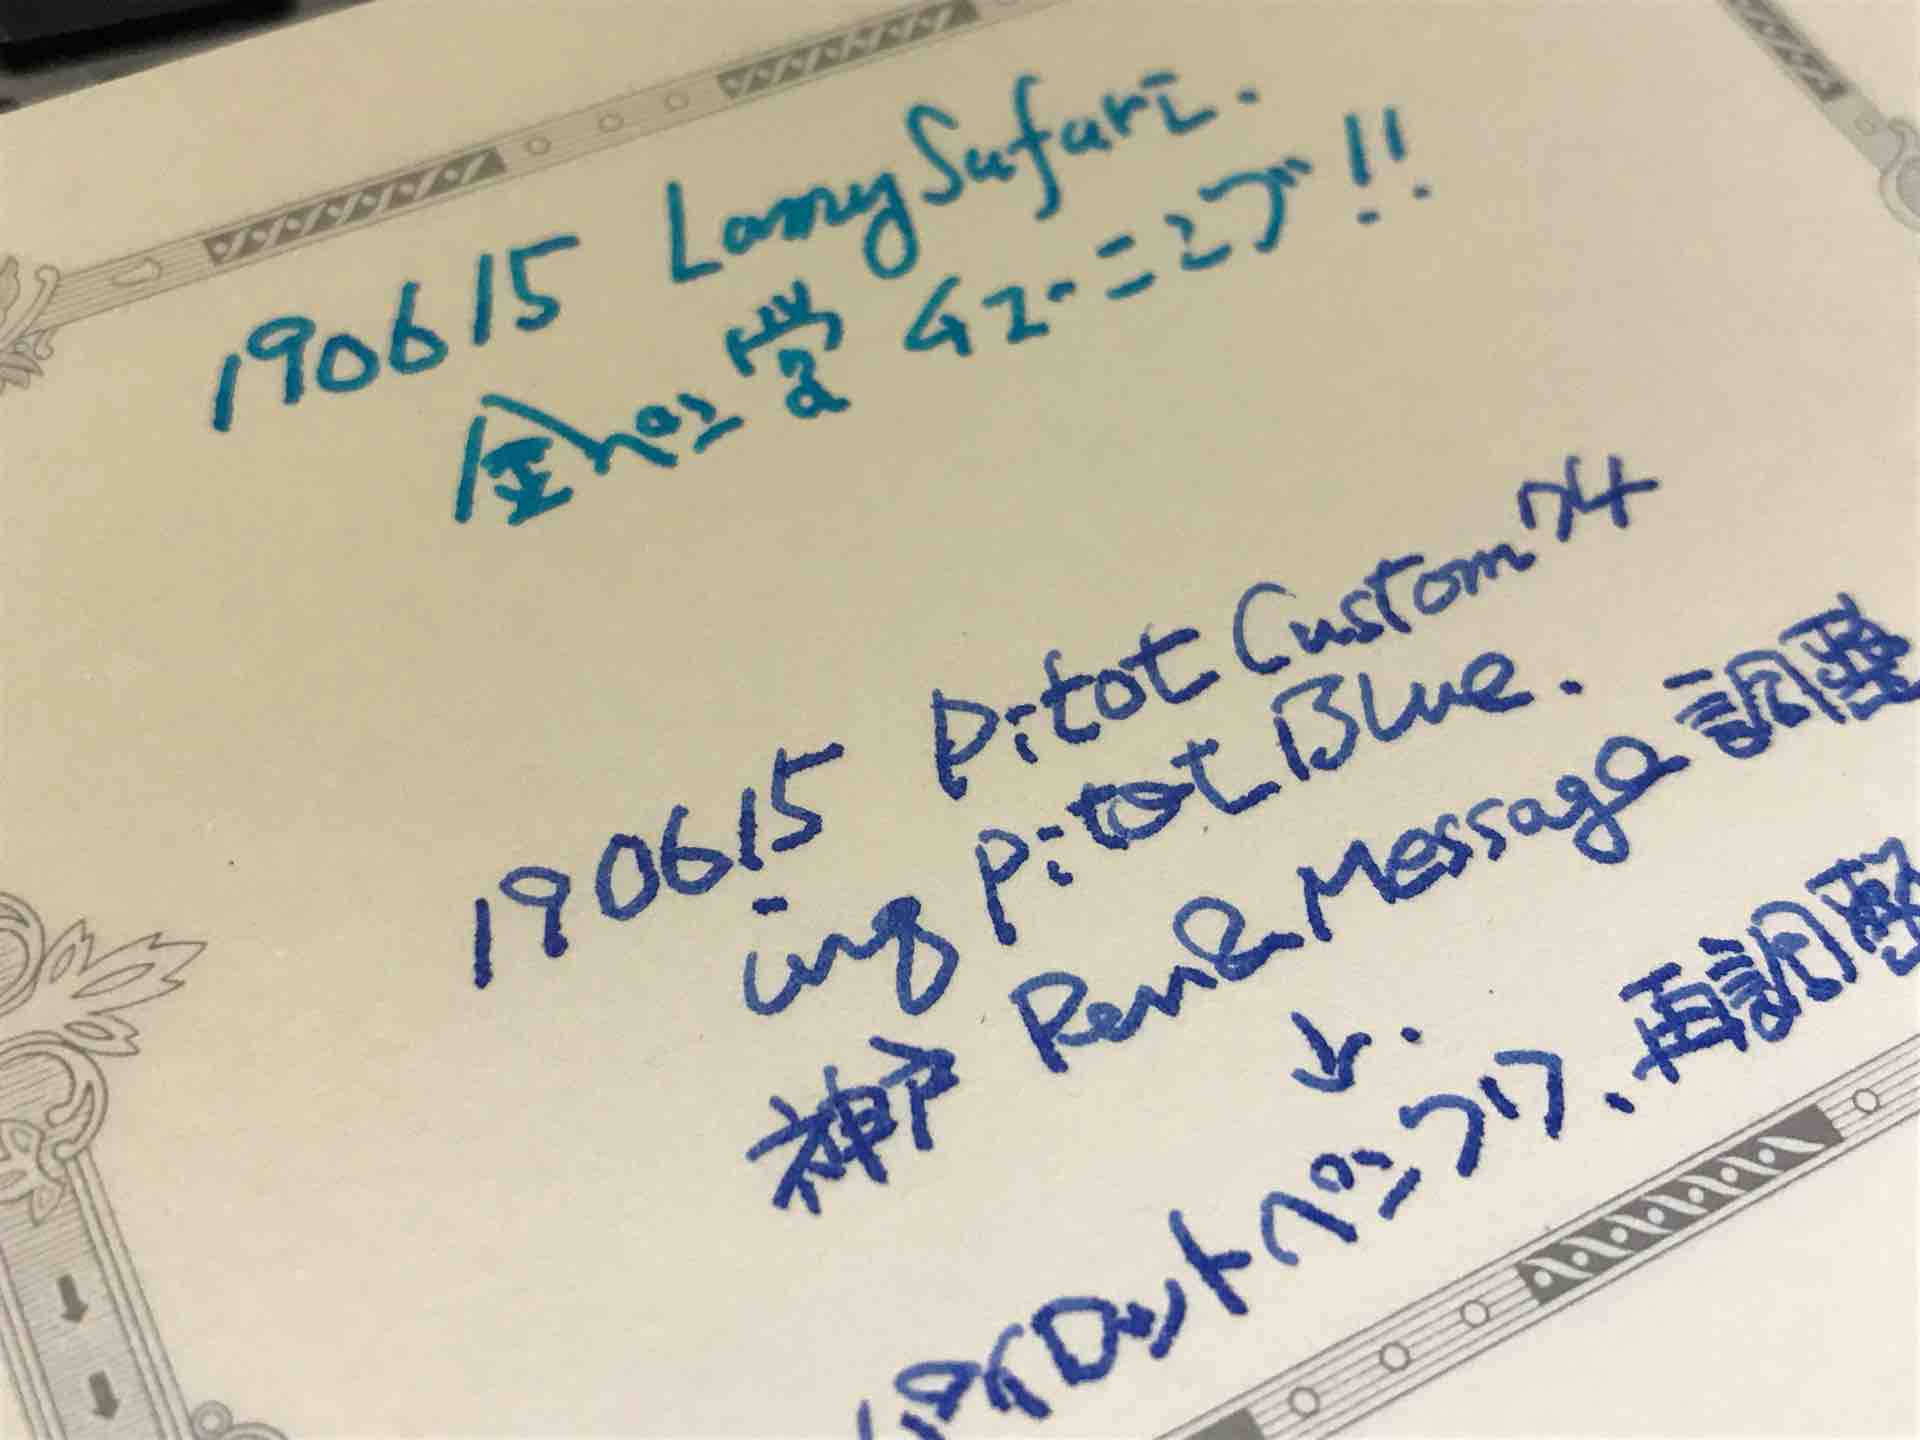 190615 Lamy Safari.
金ペン堂 チューニング!!
190615 Pilot Custom 74
ing Pilot Blue.
神戸 Pen&Message 調整
↓.
パイロットペンフリフ、再調整